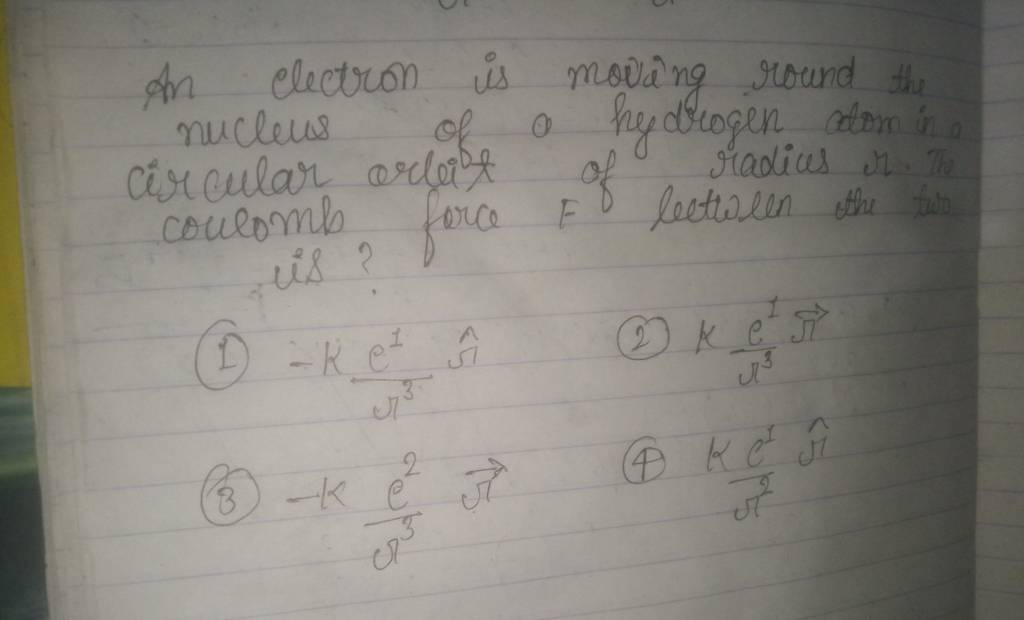 An electron is moving round the
nucleus of a hydrogen atom in a
circular orbit of radius r. The
coulomb force F between the two
is ?
① -K e¹/r³ r̂
② K e¹/r³ r⃗
③ -K e²/r³ r⃗
④ K e¹/r² r̂